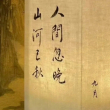 人間忽晚
山河已秋
九月